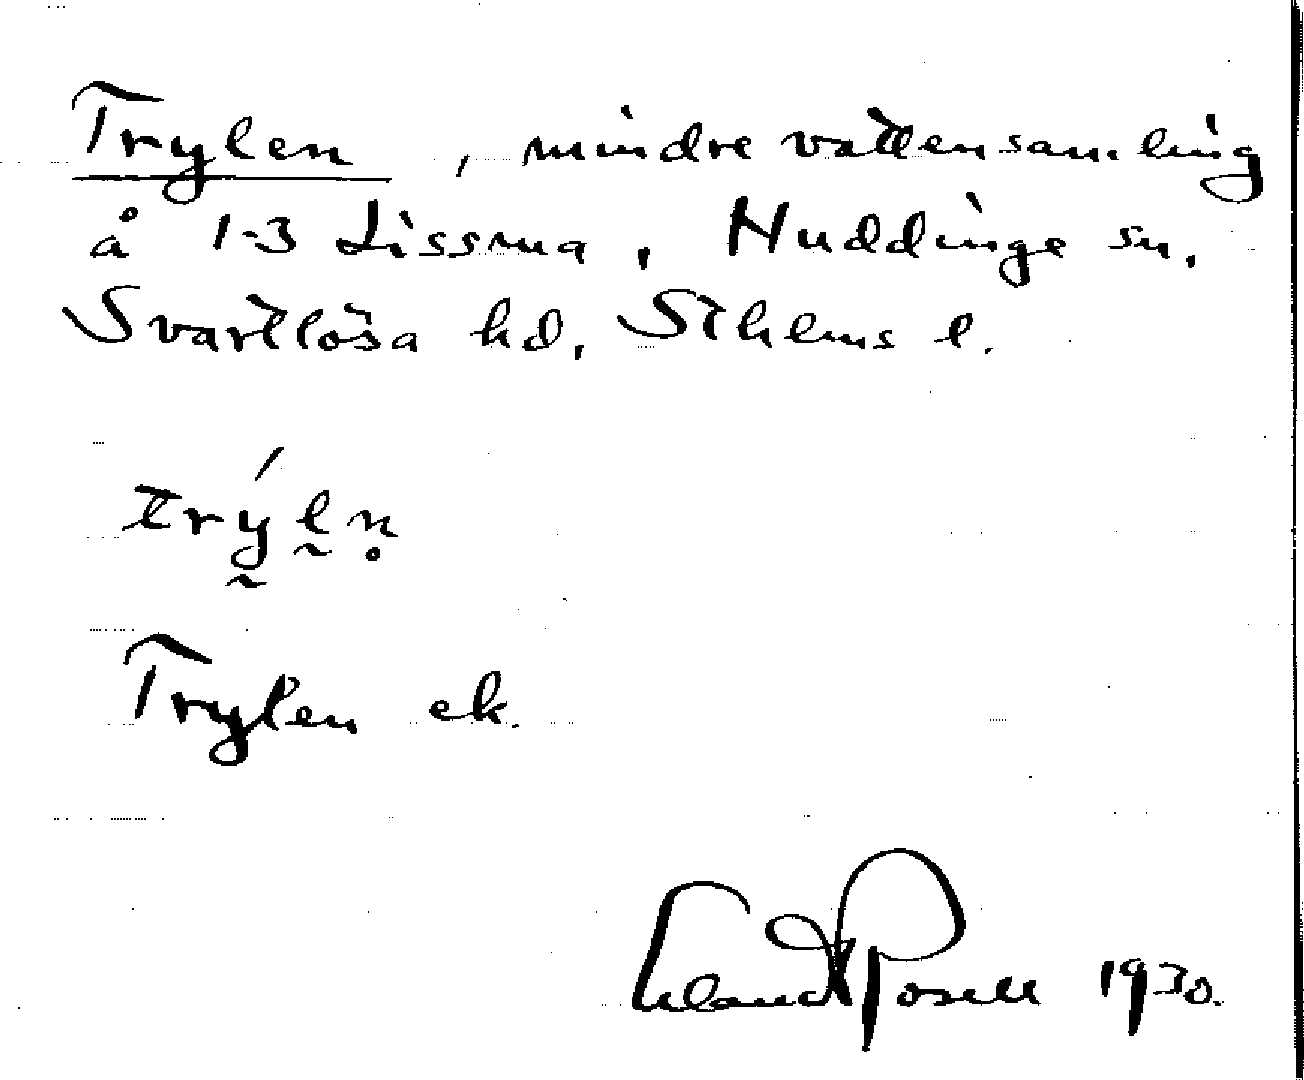 Trylen, mindre vattensamling
å 1-3 Lissma, Huddinge sn,
Svartlösa hd, Sthlms l.
trýlṇ
Trylen ek.
Erland Rosell 1930.